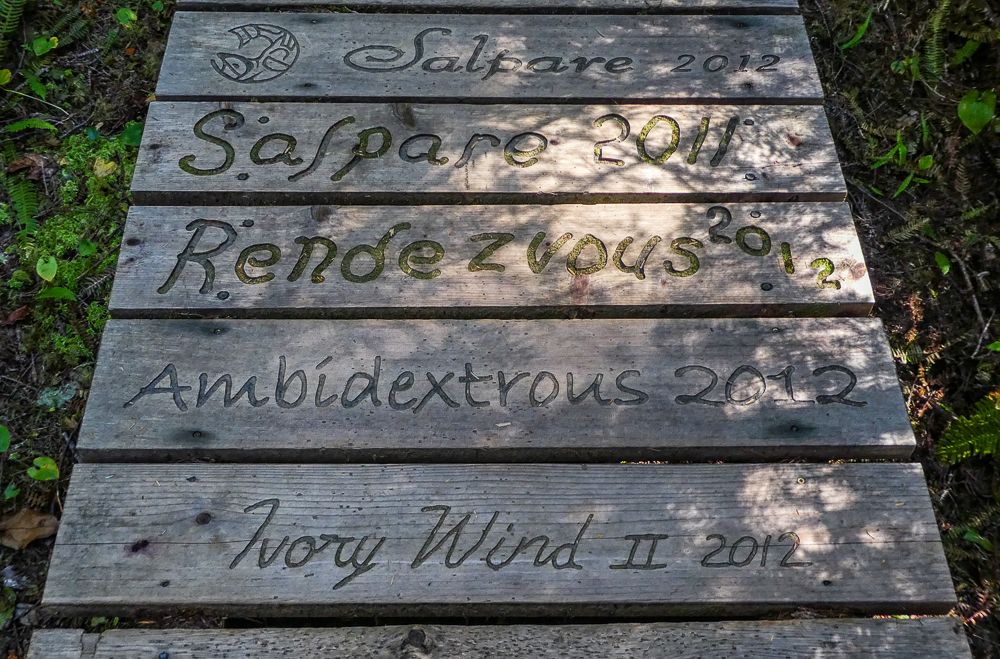 Salpare 2012
Salpare 2011
Rendezvous 2012
Ambidextrous 2012
Ivory Wind II 2012